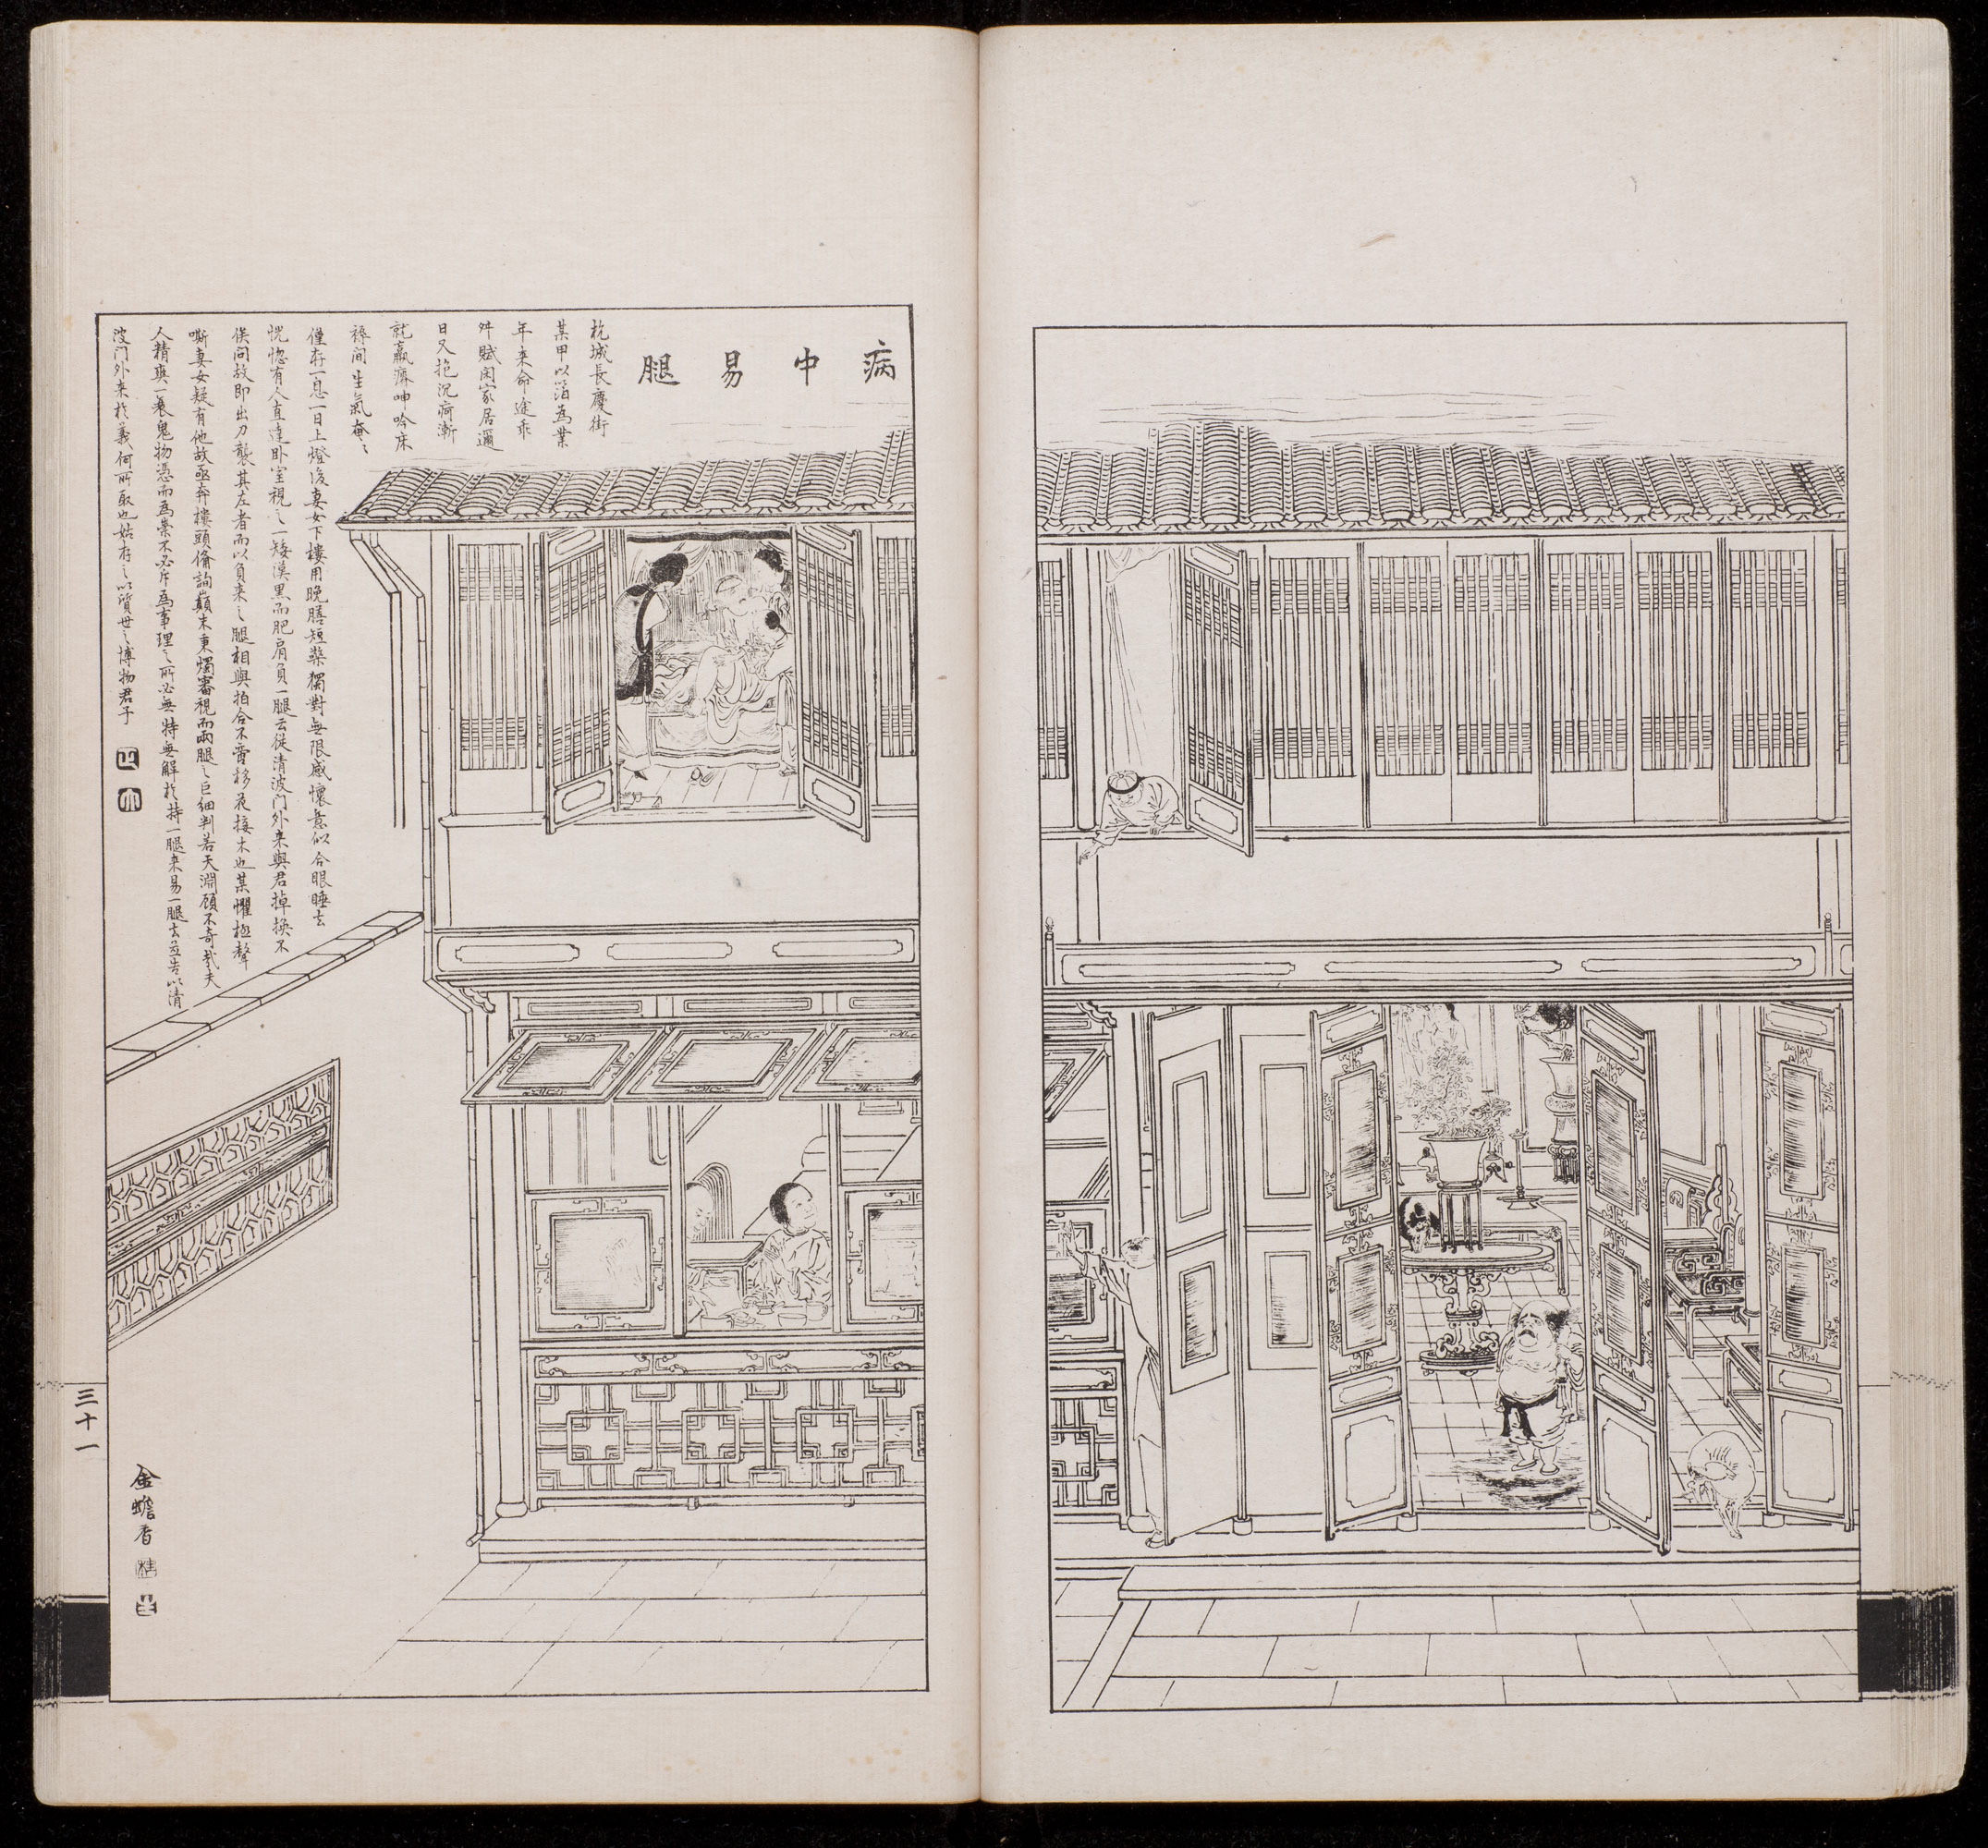 病中易腿
杭城長慶街
某甲以箔為業
年來命途乖
舛賦閑家居邇
日又抱沉疴漸
就羸瘠呻吟床
褥間生氣奄〻
僅存一息一日上燈後妻女下樓用晚膳短檠獨對無限感懷意似合眼睡去
恍惚有人直達卧室視之一矮漢黑而肥肩負一腿云從清波門外來與君掉換不
俟問故即出刀襲其左者而以負來之腿相與拍合不啻移花接木也某懼極聲
嘶妻女疑有他故亟奔樓頭備詢顛末秉燭審視而兩腿之巨細判若天淵顧不奇哉夫
人精爽一衰鬼物憑而為祟不必斥為事理之所必無特無解於持一腿來易一腿去並告以清
波門外來於義何所取也姑存之以質世之博物君子
三十一
金蟾香